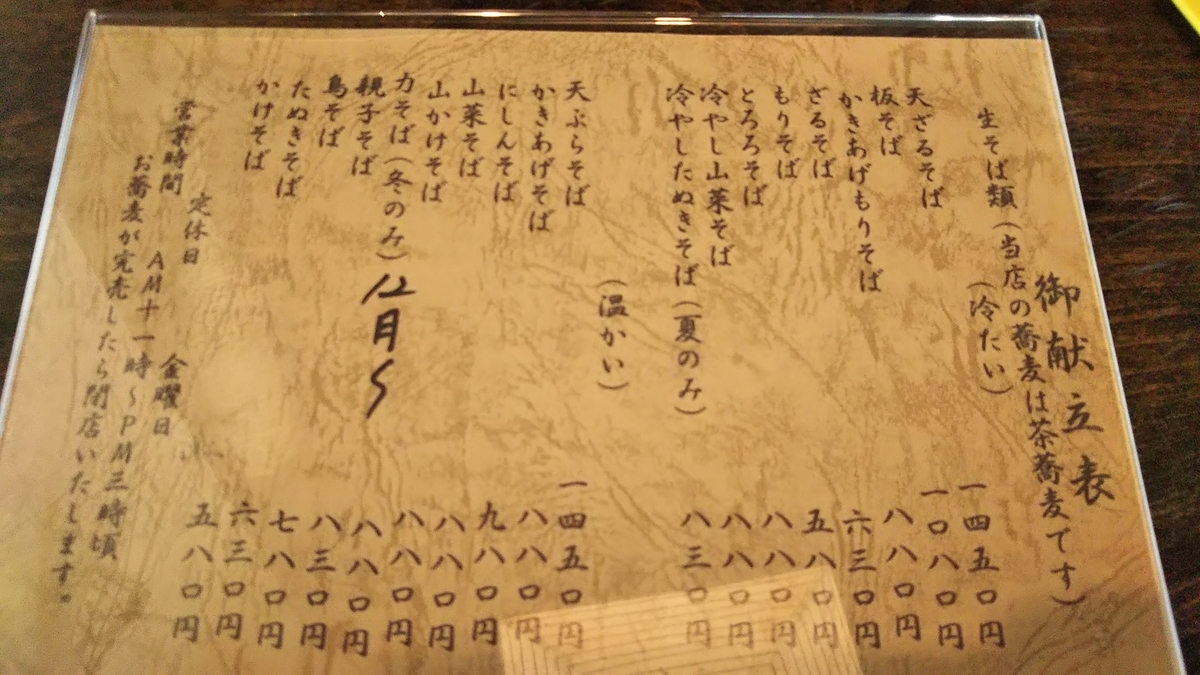 御献立表
生そば類(当店の蕎麦は茶蕎麦です)
(冷たい)
天ざるそば 一四五〇円
板そば 一〇八〇円
かきあげもりそば 八八〇円
ざるそば 六三〇円
もりそば 五八〇円
とろろそば 八八〇円
冷やし山菜そば 八八〇円
冷やしたぬきそば(夏のみ) 八三〇円
(温かい)
天ぷらそば 一四五〇円
かきあげそば 八八〇円
にしんそば 九八〇円
山菜そば 八八〇円
山かけそば 八八〇円
力そば(冬のみ)12月〜 八八〇円
親子そば 八三〇円
鳥そば 七八〇円
たぬきそば 六三〇円
かけそば 五八〇円
定休日 金曜日
営業時間 AM十一時〜PM三時頃
お蕎麦が完売したら閉店いたします。